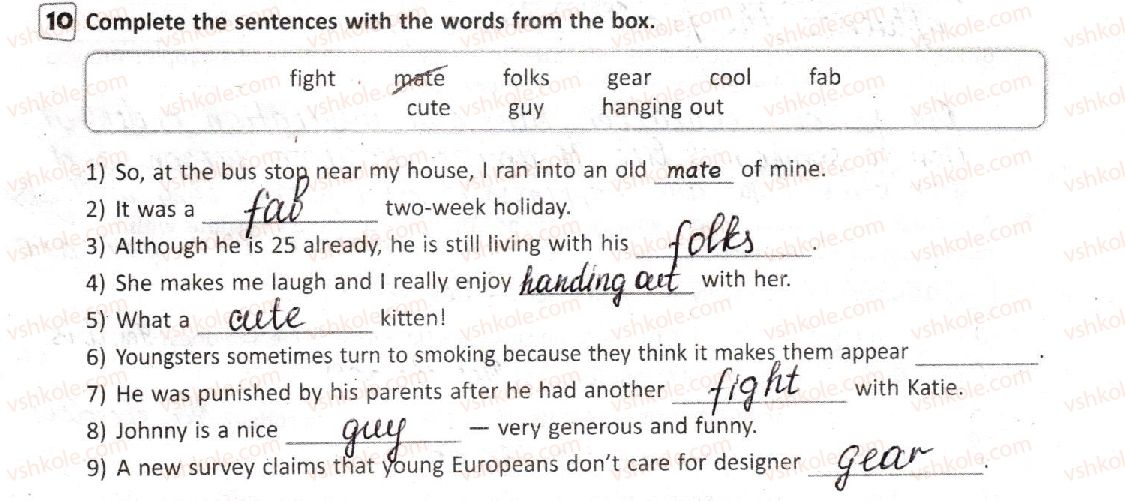 10 Complete the sentences with the words from the box.
fight mate folks gear cool fab
cute guy hanging out
1) So, at the bus stop near my house, I ran into an old mate of mine.
2) It was a fab two-week holiday.
3) Although he is 25 already, he is still living with his folks.
4) She makes me laugh and I really enjoy handing out with her.
5) What a cute kitten!
6) Youngsters sometimes turn to smoking because they think it makes them appear ________.
7) He was punished by his parents after he had another fight with Katie.
8) Johnny is a nice guy — very generous and funny.
9) A new survey claims that young Europeans don't care for designer gear.
vshkole.com